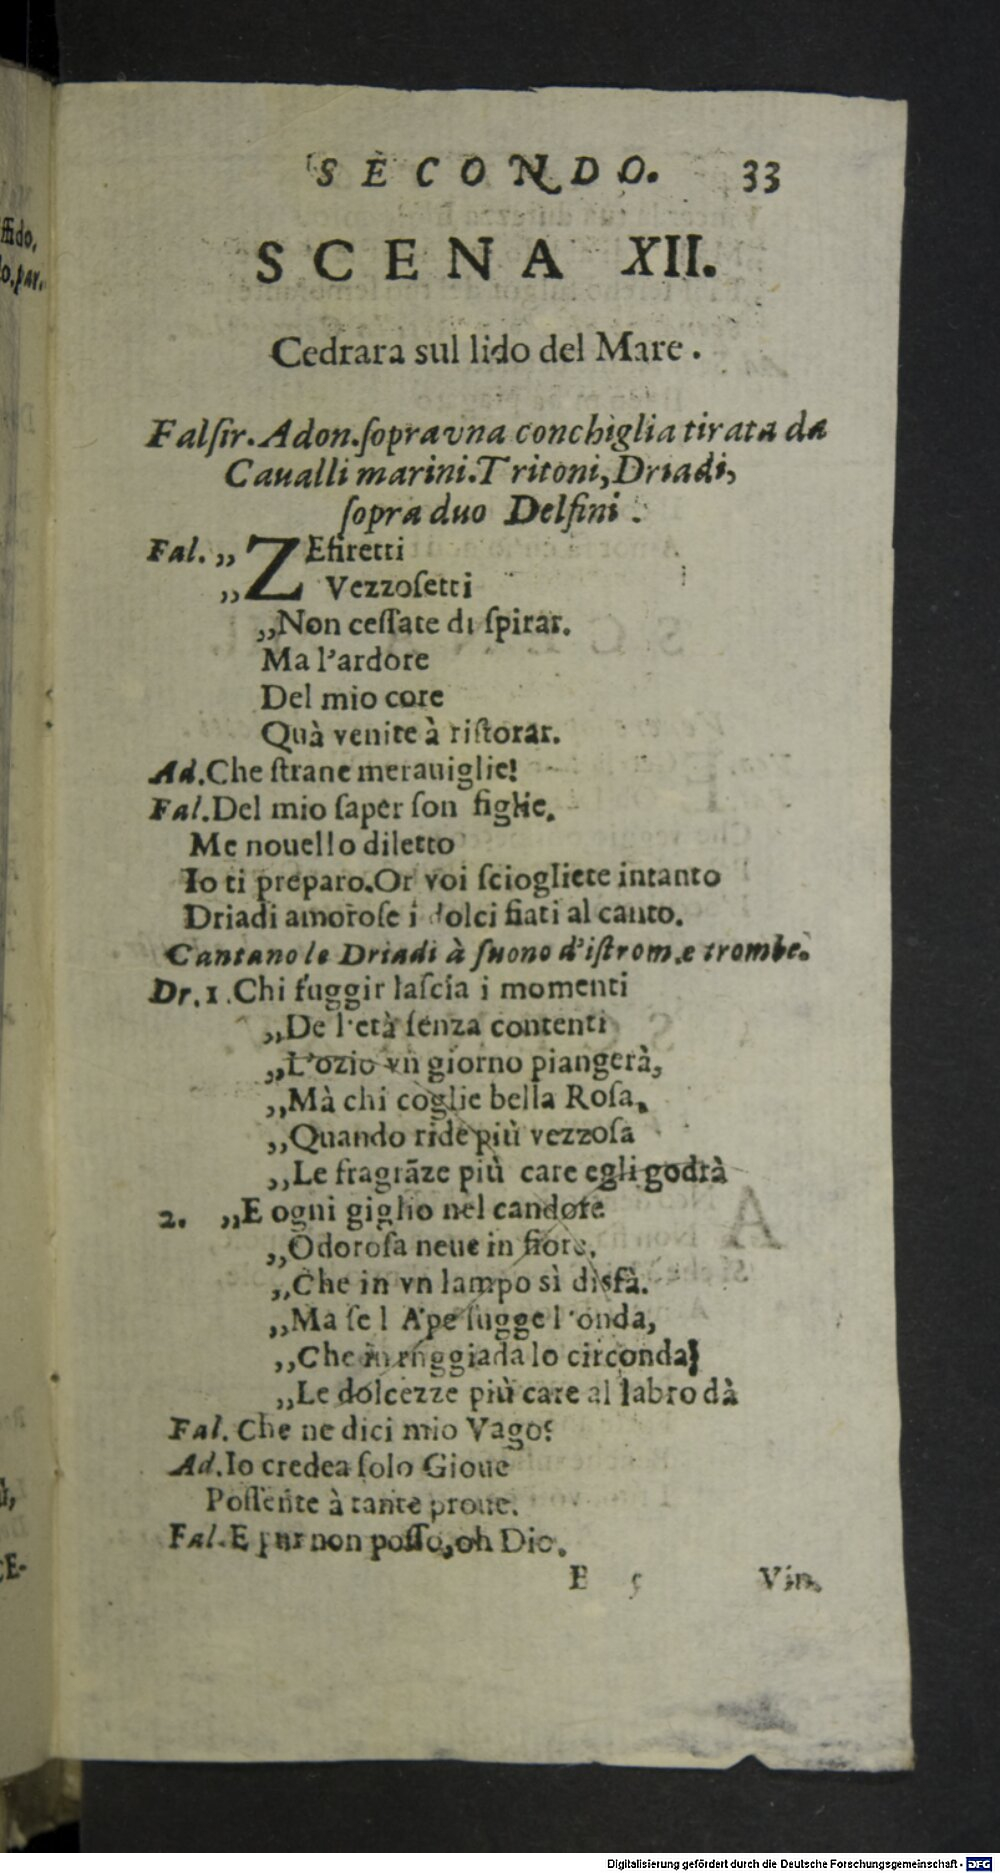 SECONDO. 33
SCENA XII.
Cedrara sul lido del Mare.
Falſir. Adon. ſopra vna conchiglia tirata da
Caualli marini. Tritoni, Driadi,
ſopra duo Delfini.
Fal. „ ZEfiretti
„ Vezzoſetti
„Non ceſſate di ſpirar.
Ma l'ardore
Del mio core
Quà venite à riſtorar.
Ad. Che ſtrane merauiglie!
Fal. Del mio ſaper ſon figlie.
Me nouello diletto
Io ti preparo. Or voi ſciogliete intanto
Driadi amoroſe i dolci fiati al canto.
Cantano le Driadi à ſuono d'iſtrom. e trombe.
Dr. 1. Chi fuggir laſcia i momenti
„De l'età ſenza contenti
„L'ozio vn giorno piangerà,
„Mà chi coglie bella Roſa,
„Quando ride più vezzoſa
„Le fragrāze più care egli godrà
2. „E ogni giglio nel candore
„Odoroſa neue in fiore,
„Che in vn lampo sì disfà.
„Ma ſe l Ape ſugge l'onda,
„Che in ruggiada lo circonda,
„Le dolcezze più care al labro dà
Fal. Che ne dici mio Vago?
Ad. Io credea ſolo Gioue
Poſſente à tante proue.
Fal. E pur non poſſo, oh Dio.
B 5 Vin-
ffido,
lo. par.
ù,
CE-
Digitalisierung gefördert durch die Deutsche Forschungsgemeinschaft - DFG